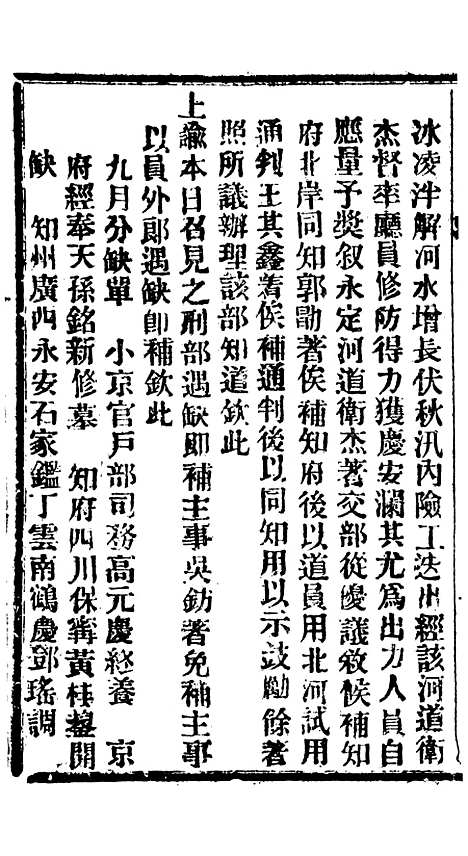 冰凌泮解河水增長伏秋汛內險工迭出經該河道衛
杰督率廳員修防得力獲慶安瀾其尤爲出力人員自
應量予獎叙永定河道衛杰著交部從優議敘候補知
府北岸同知郭勛著俟補知府後以道員用北河試用
通判王其鑫著俟補通判後以同知用以示鼓勵餘著
照所議辦理該部知道欽此
上諭本日召見之刑部遇缺即補主事吳鈁著免補主事
以員外郎遇缺卽補欽此
九月分缺單　小京官戶部司務高元慶終養　京
府經奉天孫銘新修墓　知府四川保寧黃桂鋆開
缺　知州廣西永安石家鑑丁雲南鶴慶鄧瑤調